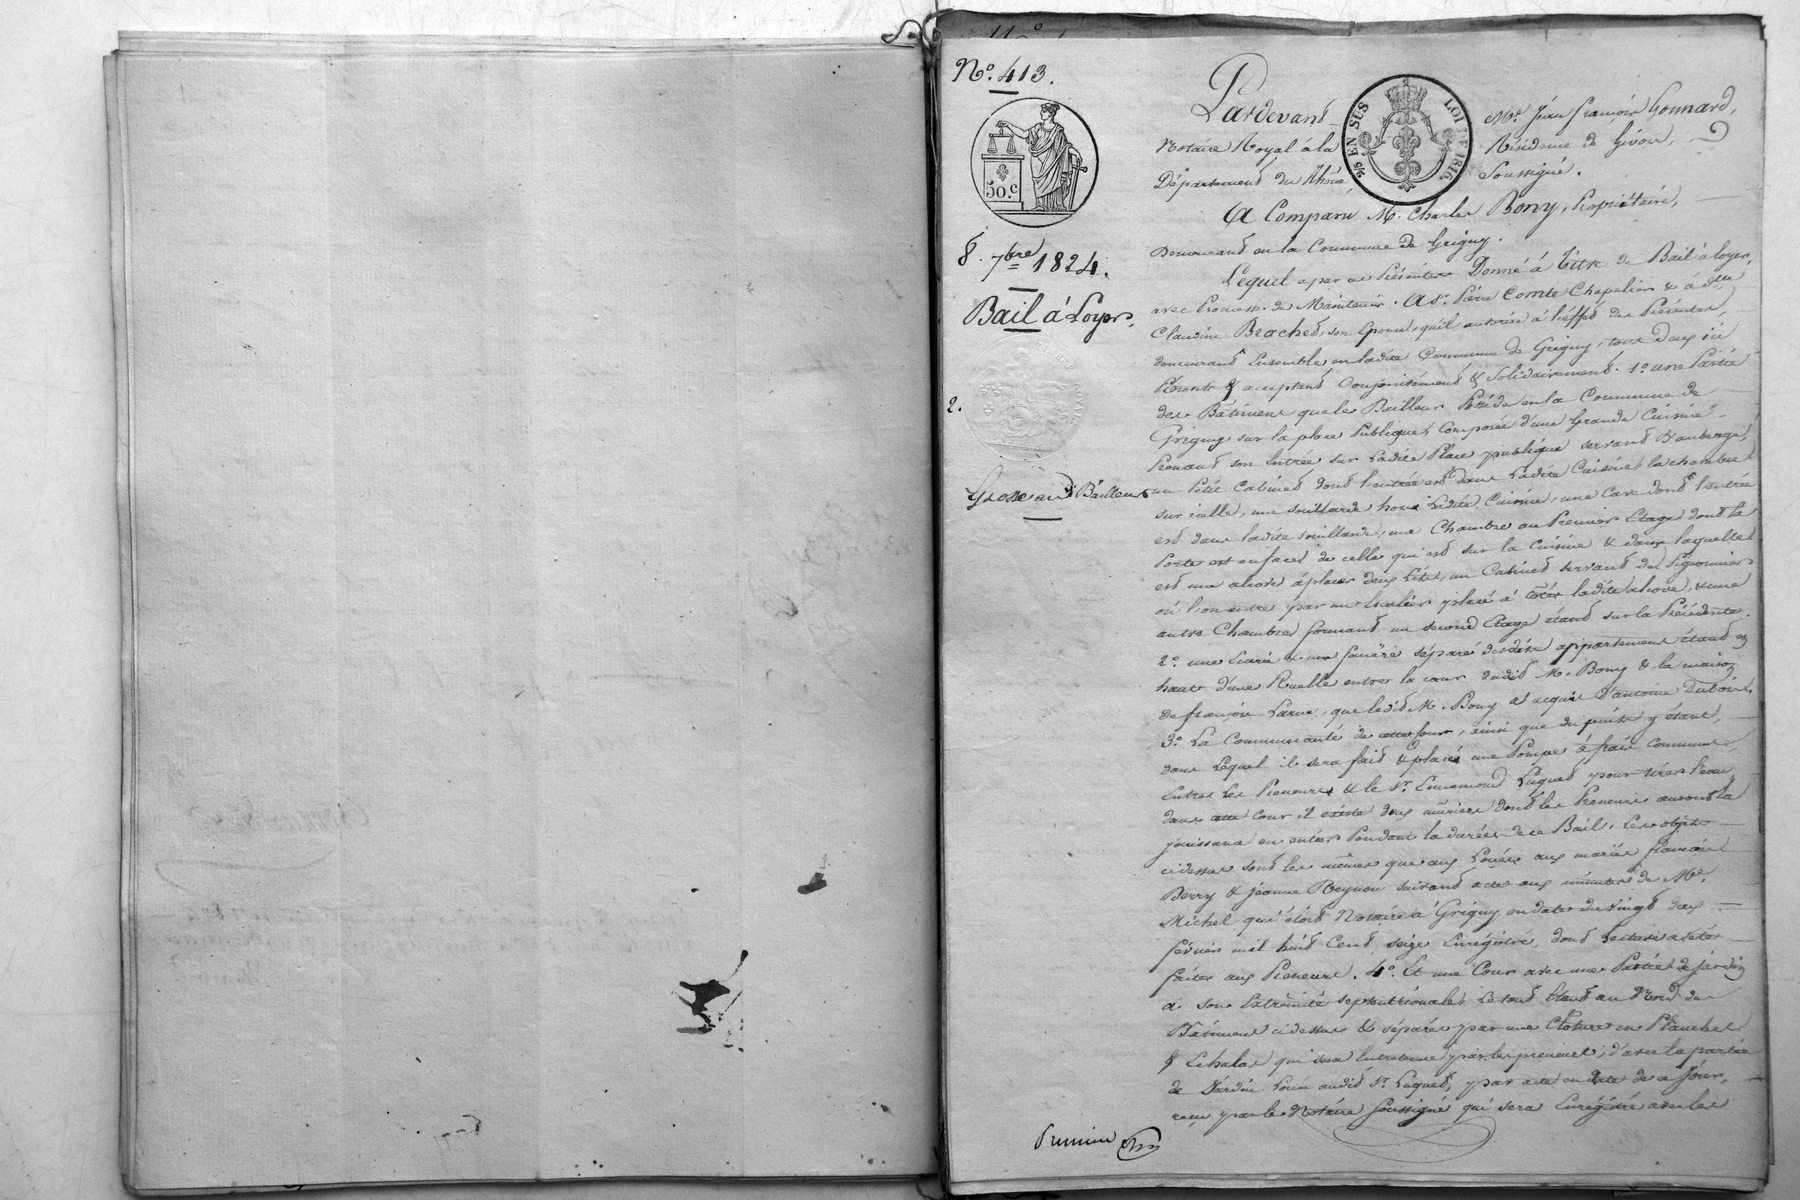 N.o 413.
50.c
2/5 EN SUS LOI DE 1816.
8. 7bre 1824.
Bail à Loyer,
2.
Grosse au d. Bailleur
Pardevant Me. Jean François Gonnard,
Notaire Royal à la Résidence de Givors,
Département du Rhône, Soussigné.
A Comparu M. Charles Bony, Propriétaire,
Demeurant en la Commune de Grigny.
Lequel a par ces Présentes Donné à Titre de Bail à Loyer,
avec Promesse de Maintenir. A Sr. Pierre Comte Chapelier & à dme
Claudine Brachet, son Epouse, qu'il autorise à l'effet des Présentes,
demeurant Ensemble en ladite Commune de Grigny, tous Deux ici
Présents & acceptant Conjointement & Solidairement. 1.o une Partie
des Bâtimens que le Bailleur Possède en la Commune de
Grigny sur la place Publique, Composée d'une Grande Cuisine
Prenant son Entrée sur Ladite Place publique servant d'auberge,
un Petit Cabinet dont l'entrée est dans Ladite Cuisine, la chambre
sur icelle, une souillarde hors Ladite Cuisine, une Cave dont l'entrée
est dans ladite souillarde, une Chambre au Premier Etage dont la
Porte est en face de celle qui est sur la Cuisine & dans laquelle
est une alcove à placer deux Lits, un Cabinet servant de Pigeonnier
où l'on entre par un Escalier placé à côté ladite alcove, & une
autre Chambre formant un second Etage étant sur la Précédente.
2.o une Ecurie & une feniere séparée desdits appartemens étant en
haut d'une Ruelle entre la cour dudit M. Bony & la maison
de françois Larue, que ledit M. Bony a acquis d'antoine Dubois.
3.o La Communauté de cette Cour, ainsi que du puits y étant,
dans Lequel il sera fait & placé une Pompe à frais communs
Entre Les Preneurs & le Sr. Ennemond Luquet pour tirer l'eau,
dans cette cour il existe deux mûriers dont les Preneurs auront la
jouissance en entier Pendant la durée de ce Bail, Les objets
cidessus sont les mêmes que aux Loués aux mariés françois
Berry & Jeanne Reynon suivant acte aux minutes de Me.
Michel qui étoit Notaire à Grigny en date du vingt deux
février mil huit Cent seize Enregistré, dont Lecture a été
faite aux Preneurs. 4.o Et une Cour avec une Partie de jardin
à son Extrémité septentrionale, Le tout Etant au Nord des
Bâtimens cidessus & séparée par une Cloture en Planches
& Echalas qui sera Entretenue par les preneurs, d'avec la partie
de Jardin Louée audit Sr. Luquet, par acte en Date de ce Jour,
reçu par le Notaire Soussigné qui sera Enregistré avec les
Premiere